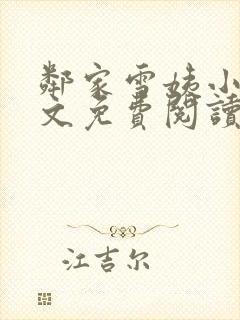 鄰家雪姨小
文免費閱讀
江吉尔